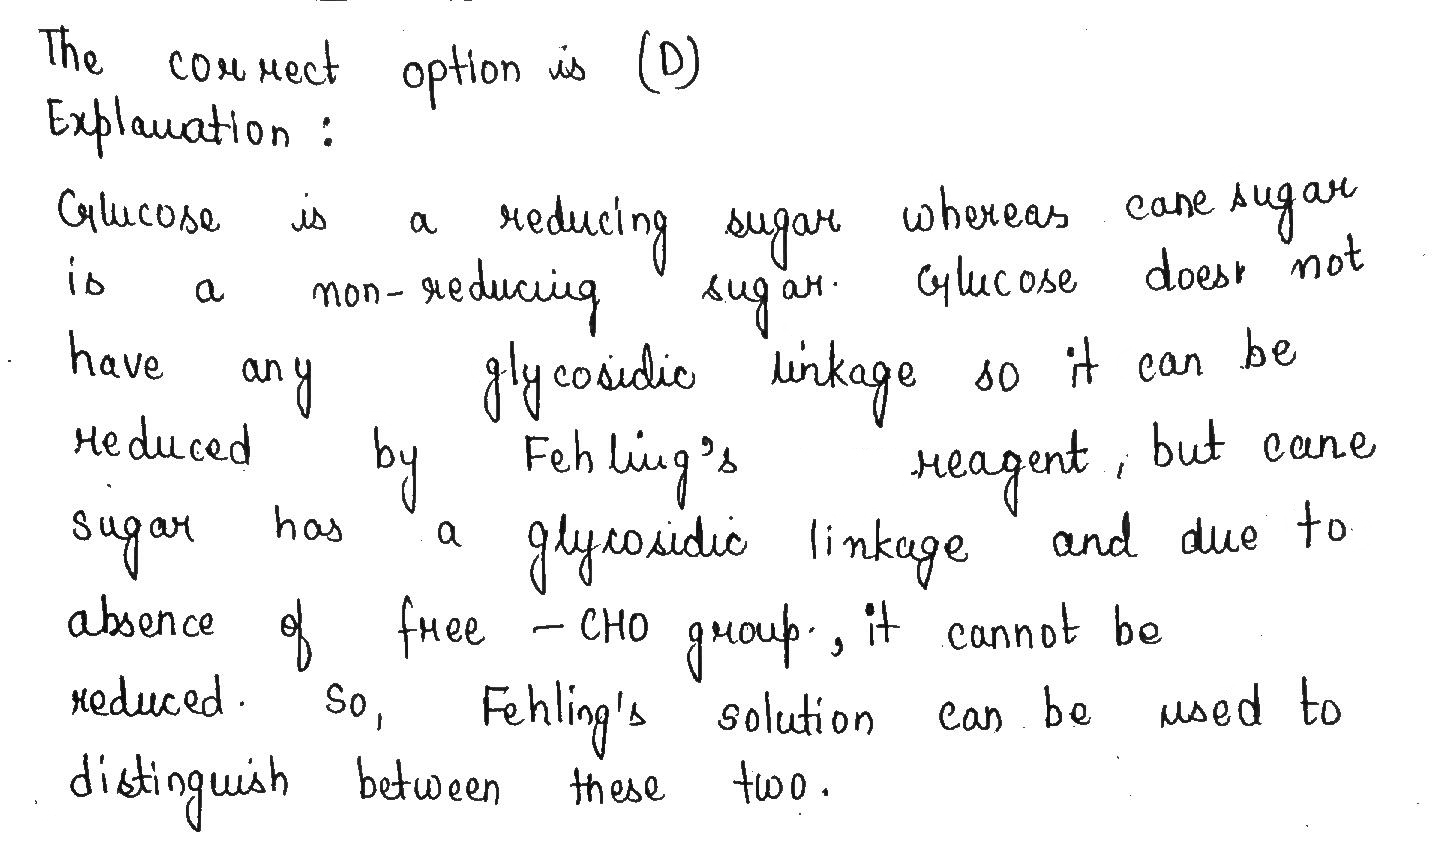 The correct option is (D)
Explanation :
Glucose is a reducing sugar whereas cane sugar
is a non-reducing sugar. Glucose does not
have any glycosidic linkage so it can be
reduced by Fehling's reagent, but cane
sugar has a glycosidic linkage and due to
absence of free - CHO group., it cannot be
reduced. So, Fehling's solution can be used to
distinguish between these two.